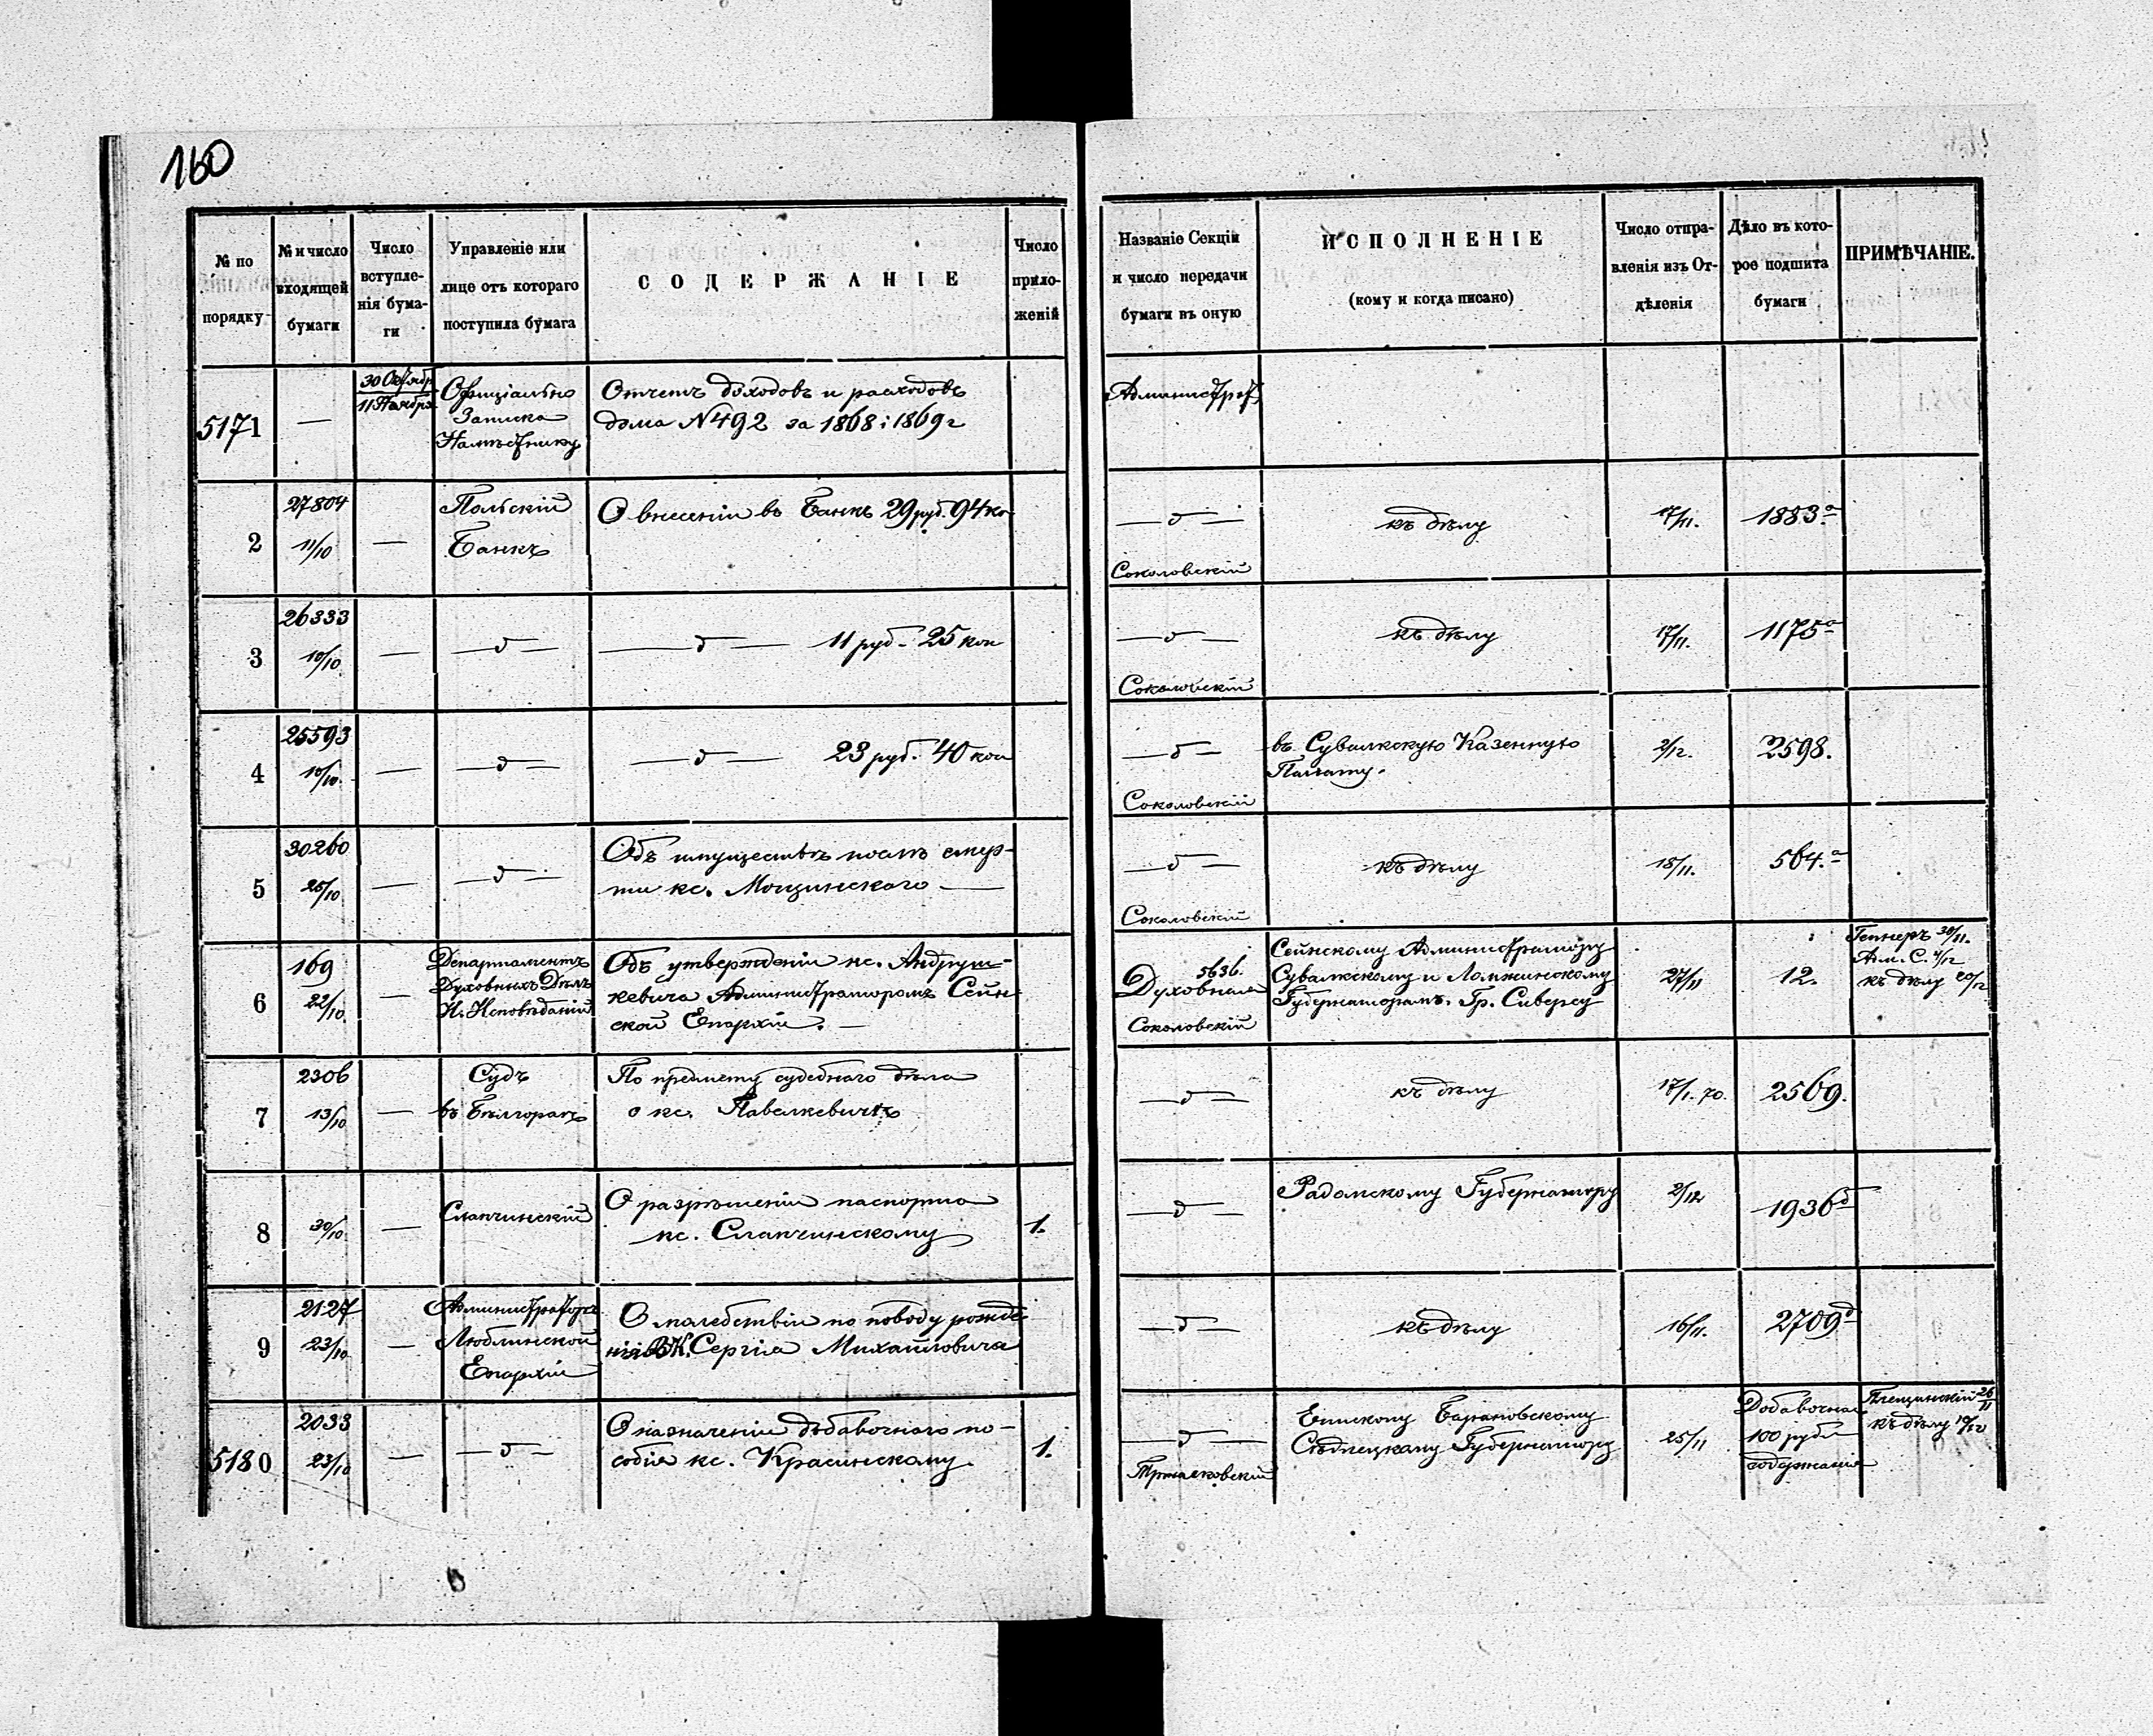 160
№ по порядку
№ и число входящей бумаги
Число вступленія бумаги
Управленіе или лице отъ котораго поступила бумага
СОДЕРЖАНІЕ
Число приложеній
Названіе Секціи и число передачи бумаги въ оную
ИСПОЛНЕНІЕ
(кому и когда писано)
Число отправленія изъ Отдѣленія
Дѣло въ которое подшита бумаги
ПРИМѢЧАНІЕ.
5171 — 30 Октябр / 11 Ноября
Записка
Намѣстнику
Отчетъ доходовъ и расходовъ
дома N 492 за 1868 i 1869 г
2 27804 11/10 —
Польскій
Банкъ
О внесеніи въ Банкъ 29 руб. 94 ко
— д —
Соколовскій
къ дѣлу 17/11. 1883.а
3 26333 10/10 — — д — — д — 11 руб. 25 коп
— д —
Соколовскій
къ дѣлу 17/11. 1175а
4 25593 10/10. — — д — — д — 23 руб. 40 коп
— д —
Соколовскій
въ Сувалкскую Казенную
Палату. 2/12. 2598.
5 30260 25/10 — — д —
Объ имуществѣ послѣ смер-
ти кс. Мощинскаго —
— д —
Соколовскій
къ дѣлу 18/11. 564.а
6 169 22/10. —
Департаментъ
Духовныхъ Дѣлъ
И. Исповѣданій
Объ утвержденіи кс. Андруш-
кевича Администраторомъ Сейн-
ской Епархіи. —
5636.
Духовная
Соколовскій
Сейнскому Администратору
Сувалкскому и Ломжинскому
Губернаторамъ. Гр. Сиверсу
27/11 12.
30/11.
къ дѣлу 20/12
7 2306 13/10 —
Судъ
въ Бѣлгораѣ
По предмету судебнаго дѣла
о кс. Павелкевичѣ
— д — къ дѣлу 17/1. 70. 2569.
8 30/10. —
Слапчинскій
О разрѣшеніи паспорта
кс. Слапчинскому 1.
— д — Радомскому Губернатору 2/12 1936д
9 2127 23/10 —
Администраторъ
Люблинской
Епархіи
О молебствіи по поводу рожде
нія В.К. Сергія Михайловича
— д — къ дѣлу 16/11. 2709д
5180 2033 23/10 — — д —
О назначеніи добавочнаго по-
собія кс. Красинскому 1.
— д —
Епископу Барановскому
Сѣдлецкому Губернатору
25/11
Добавочная
100 рубл
содержанія
26/11
къ дѣлу